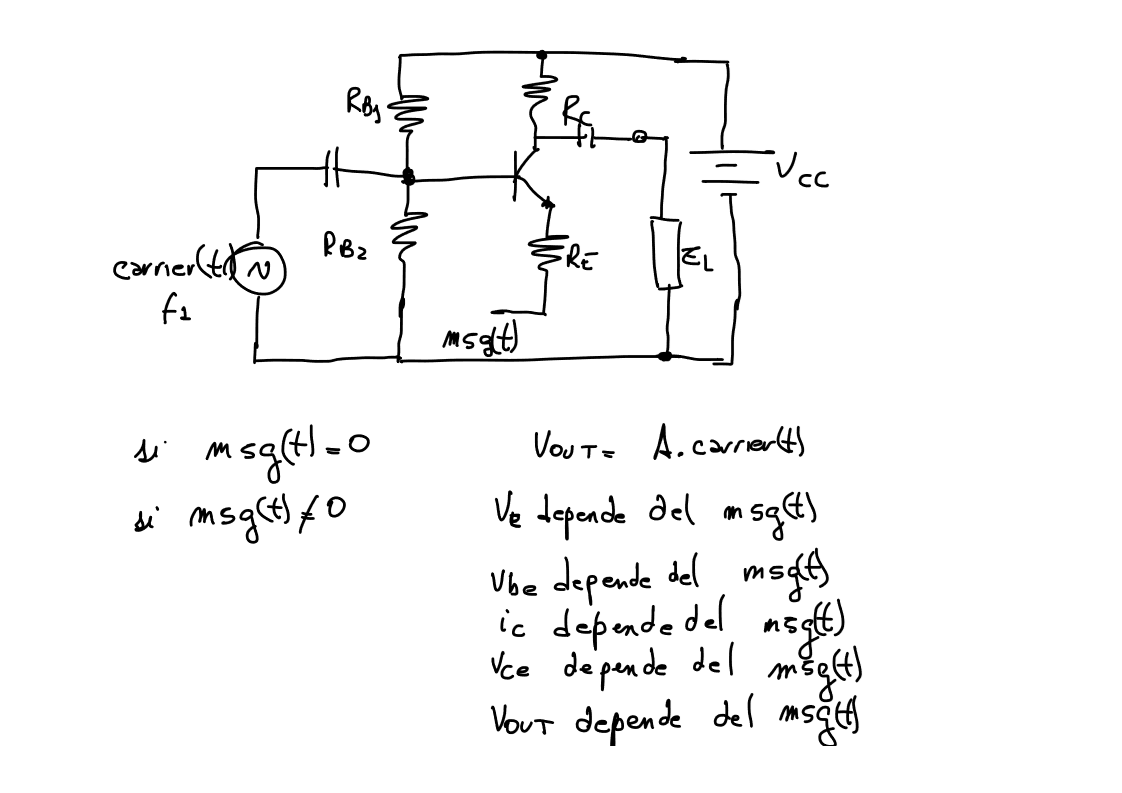 R_B1
R_C
V_CC
R_B2
carrier(t)
f1
R_E
Z_L
msg(t)
si msg(t) = 0 V_OUT = A. carrier(t)
si msg(t) ≠ 0 Ve depende del msg(t)
Vbe depende del msg(t)
ic depende del msg(t)
Vce depende del msg(t)
V_OUT depende del msg(t)